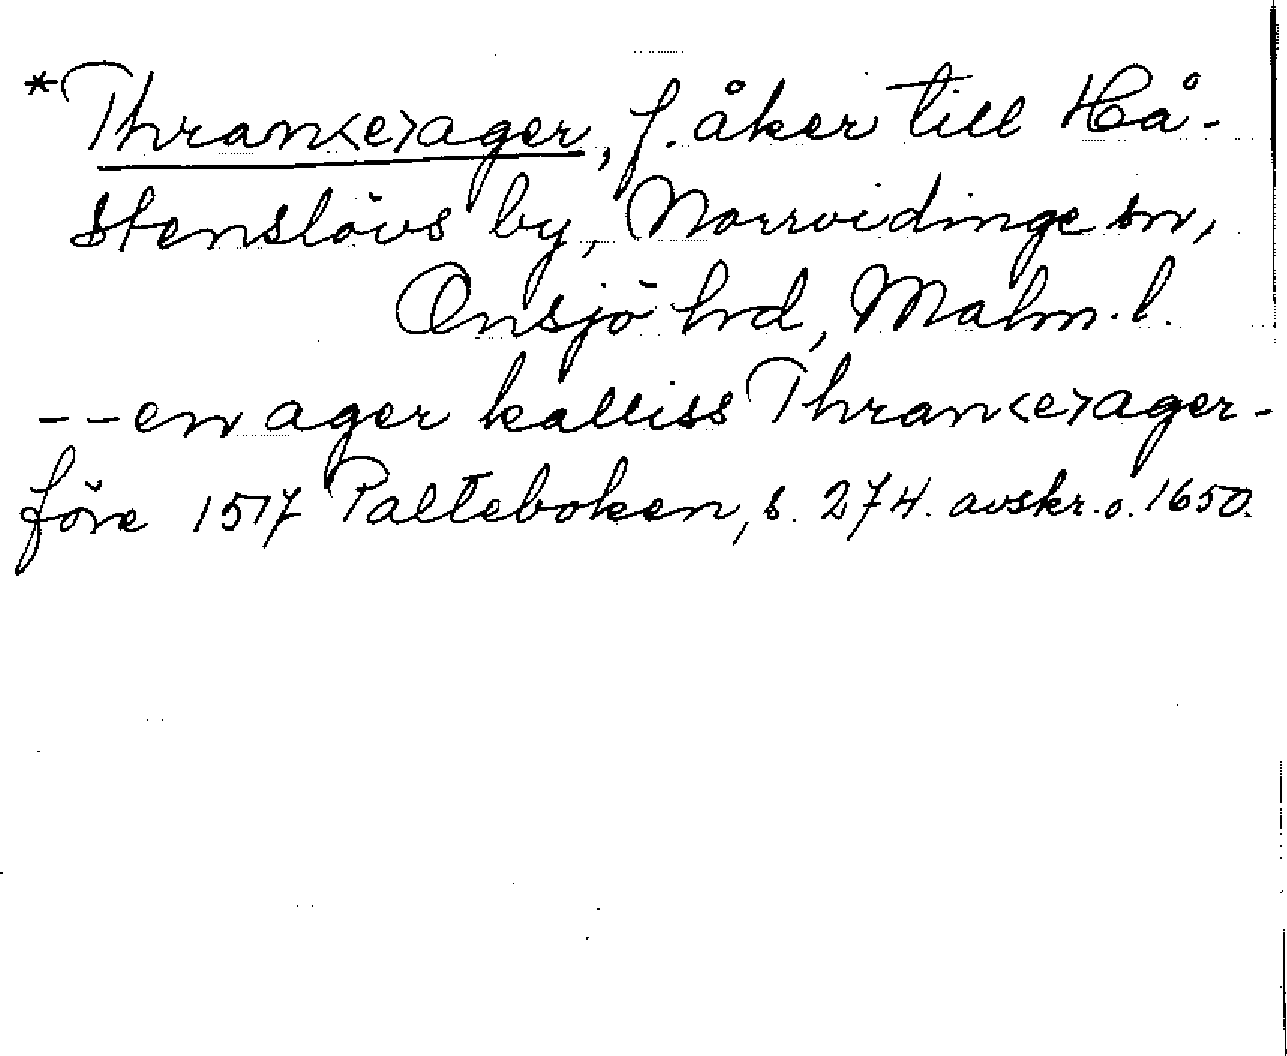 *Thran<e>ager, f. åker till Hå-
stenslövs by, Norrvidinge sn,
Onsjö hd, Malm. l.
--en ager kalliss Thran<e>ager-
före 1517 Palteboken, s. 274. avskr. o. 1650.